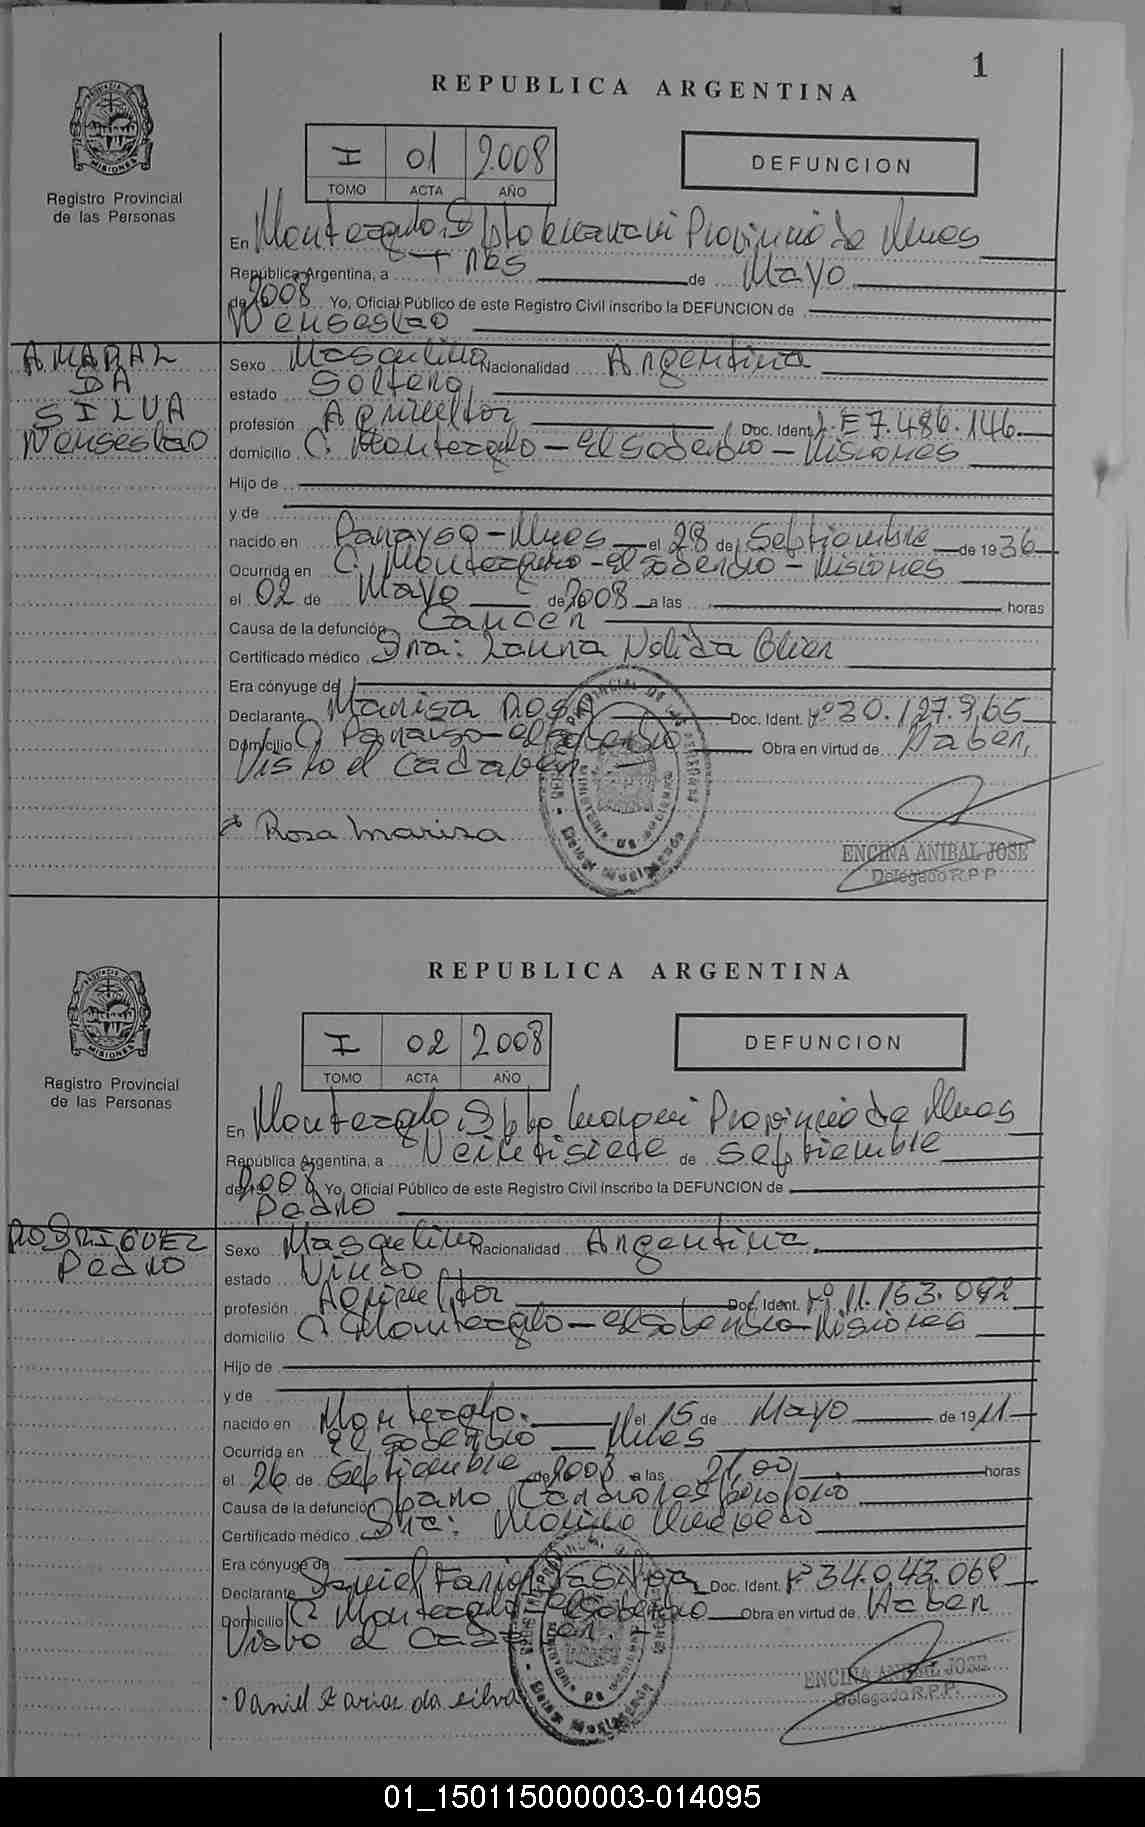 1
REPUBLICA ARGENTINA
I 01 2008
TOMO ACTA AÑO
DEFUNCION
Registro Provincial
de las Personas
En Monteagudo, Dpto Guarani Provincia de Mnes
República Argentina, a TRES de Mayo
de 2008 Yo, Oficial Público de este Registro Civil inscribo la DEFUNCION de
Wenseslao
AMARAL
DA
SILVA
Wenseslao
Sexo Masculino Nacionalidad Argentina
estado Soltero
profesión Agricultor Doc. Ident. L.E 7.486.146
domicilio C. Monteagudo - El Soberbio - Misiones
Hijo de
y de
nacido en Parayso - Mnes el 28 de Septiembre de 1936
Ocurrida en C. Monteagudo - El Soberbio - Misiones
el 02 de Mayo de 2008 a las horas
Causa de la defunción Cancer
Certificado médico Dra: Laura Nelida
Era cónyuge de
Declarante Marisa ROSA Doc. Ident. Nº 30.127.965
Domicilio C. Paraiso - El Soberbio Obra en virtud de Haber,
Visto el Cadaber
Rosa Marisa
ENCINA ANIBAL JOSE
Delegado R.P.P
REPUBLICA ARGENTINA
I 02 2008
TOMO ACTA AÑO
DEFUNCION
MISIONES
Registro Provincial
de las Personas
En Monteagudo, Dpto Guarani Provincia de Mnes
República Argentina, a Veintisiete de Septiembre
de 2008 Yo, Oficial Público de este Registro Civil inscribo la DEFUNCION de
Pedro
RODRIGUEZ
Pedro
Sexo Masculino Nacionalidad Argentina
estado Viudo
profesión Agricultor Doc. Ident. Nº 11.153.092
domicilio C. Monteagudo - El Soberbio - Misiones
Hijo de
y de
nacido en Monteagudo. el 15 de Mayo de 1911
Ocurrida en El Soberbio - Mnes
el 26 de Septiembre de 2008 a las 21,00 horas
Causa de la defunción paro Cardiorespiratorio
Certificado médico
Era cónyuge de
Declarante Daniel Farias Da Silva Doc. Ident. Nº 34.043.068
Domicilio C. Monteagudo - El Soberbio Obra en virtud de Haber
Visto el Cadaber.
Daniel Farias da silva
ENCINA ANIBAL JOSE
Delegado R.P.P.
01_150115000003-014095